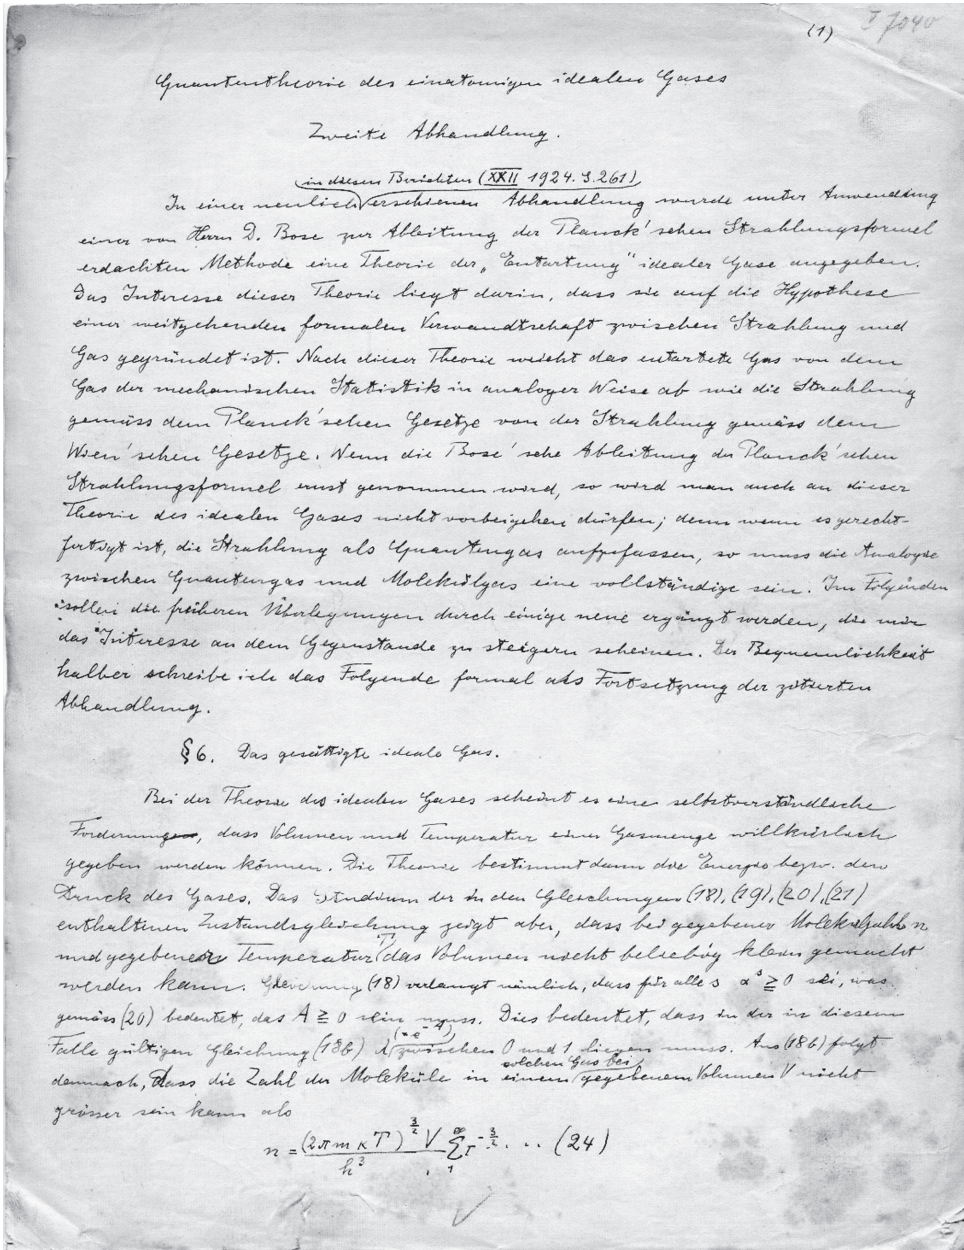 (1)
I 7040
Quantentheorie des einatomigen idealen Gases
Zweite Abhandlung.
(in diesen Berichten (XXII 1924. S. 261)
In einer neulich erschienen Abhandlung wurde unter Anwendung
einer von Herrn D. Bose zur Ableitung der Planck'schen Strahlungsformel
erdachten Methode eine Theorie der „Entartung" idealer Gase angegeben.
Das Interesse dieser Theorie liegt darin, dass sie auf die Hypothese
einer weitgehenden formalen Verwandtschaft zwischen Strahlung und
Gas gegründet ist. Nach dieser Theorie weicht das entartete Gas von dem
Gas der mechanischen Statistik in analoger Weise ab wie die Strahlung
gemäss dem Planck'schen Gesetze von der Strahlung gemäss dem
Wien'schen Gesetze. Wenn die Bose'sche Ableitung der Planck'schen
Strahlungsformel ernst genommen wird, so wird man auch an dieser
Theorie des idealen Gases nicht vorbeigehen dürfen; denn wenn es gerecht-
fertigt ist, die Strahlung als Quantengas aufzufassen, so muss die Analogie
zwischen Quantengas und Molekülgas eine vollständige sein. Im Folgenden
sollen die früheren Überlegungen durch einige neue ergänzt werden, die mir
das Interesse an dem Gegenstande zu steigern scheinen. Der Bequemlichkeit
halber schreibe ich das Folgende formal als Fortsetzung der zitierten
Abhandlung.
§6. Das gesättigte ideale Gas.
Bei der Theorie des idealen Gases scheint es eine selbstverständliche
Forderung, dass Volumen und Temperatur einer Gasmenge willkürlich
gegeben werden können. Die Theorie bestimmt dann die Energie bezw. den
Druck des Gases. Das Studium der in den Gleichungen (18), (19), (20), (21)
enthaltenen Zustandsgleichung zeigt aber, dass bei gegebener Molekülzahl n
und gegebener Temperatur T das Volumen nicht beliebig klein gemacht
werden kann. Gleichung (18) verlangt nämlich, dass für alle s αˢ ≧ 0 sei, was
gemäss (20) bedeutet, das A ≧ 0 sein muss. Dies bedeutet, dass in der in diesem
Falle gültigen Gleichung (18b) λ (= e⁻ᴬ) zwischen 0 und 1 liegen muss. Aus (18b) folgt
demnach, dass die Zahl der Moleküle in einem solchen Gas bei gegebenem Volumen V nicht
grösser sein kann als
n = (2πmκT)^{3/2} V / h³ Σ_1^∞ τ^{-3/2} . . . (24)